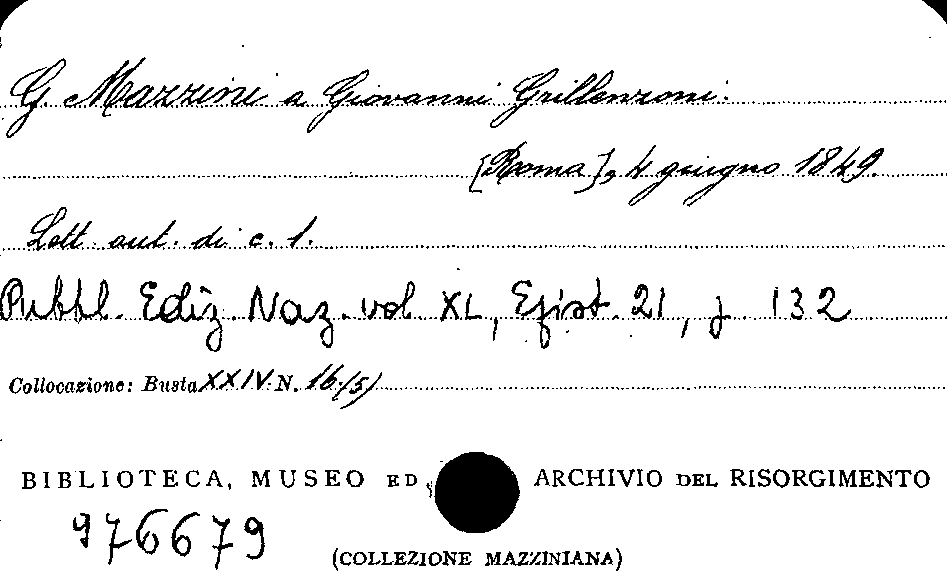 G. Mazzini a Giovanni Grillenzoni.
[Roma], 4 giugno 1849.
Lett. aut. di c. 1.
Pubbl. Ediz. Naz. vol. XL, Epist. 21, p. 132
Collocazione: Busta XXIV N. 16/5)
BIBLIOTECA, MUSEO ED ARCHIVIO DEL RISORGIMENTO
976679
(COLLEZIONE MAZZINIANA)